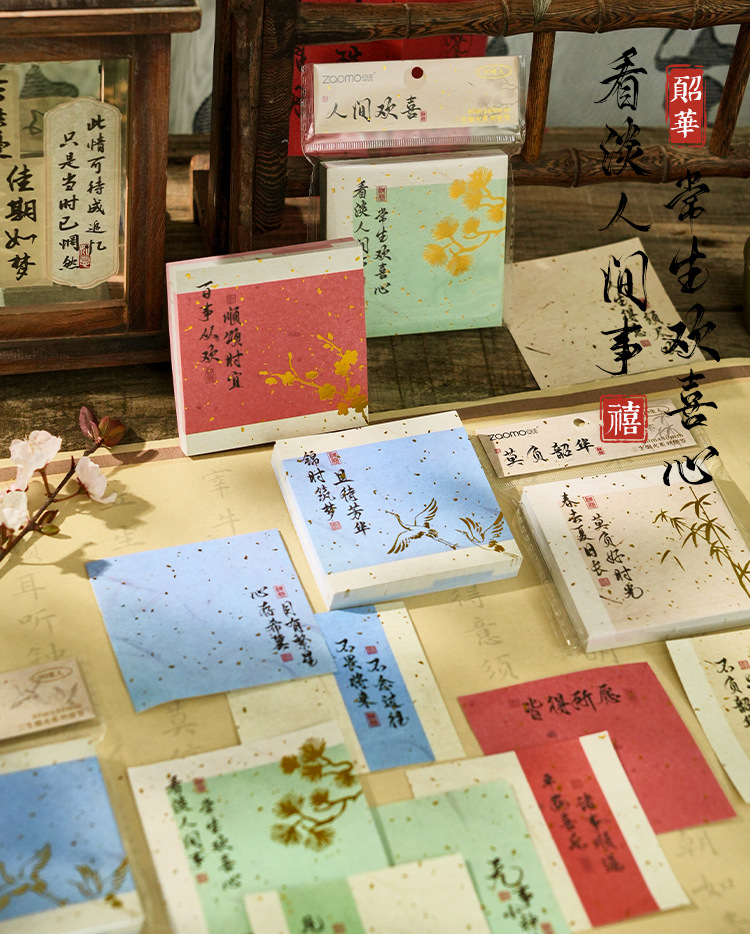 看淡人间事
常生欢喜心
韶華
禧
此情可待成追忆
只是当时已惘然
佳期如梦
zaomo
人间欢喜
看淡人间事
常生欢喜心
百事从欢
顺颂时宜
锦时筑梦
且待芳华
zaomo
莫负韶华
三生烟火系列便签
春云夏日长
莫负好时光
目有繁星
心存希冀
不念过往
不畏将来
皆得所愿
看淡人间事
常生欢喜心
平安喜乐
诸事顺遂
无事